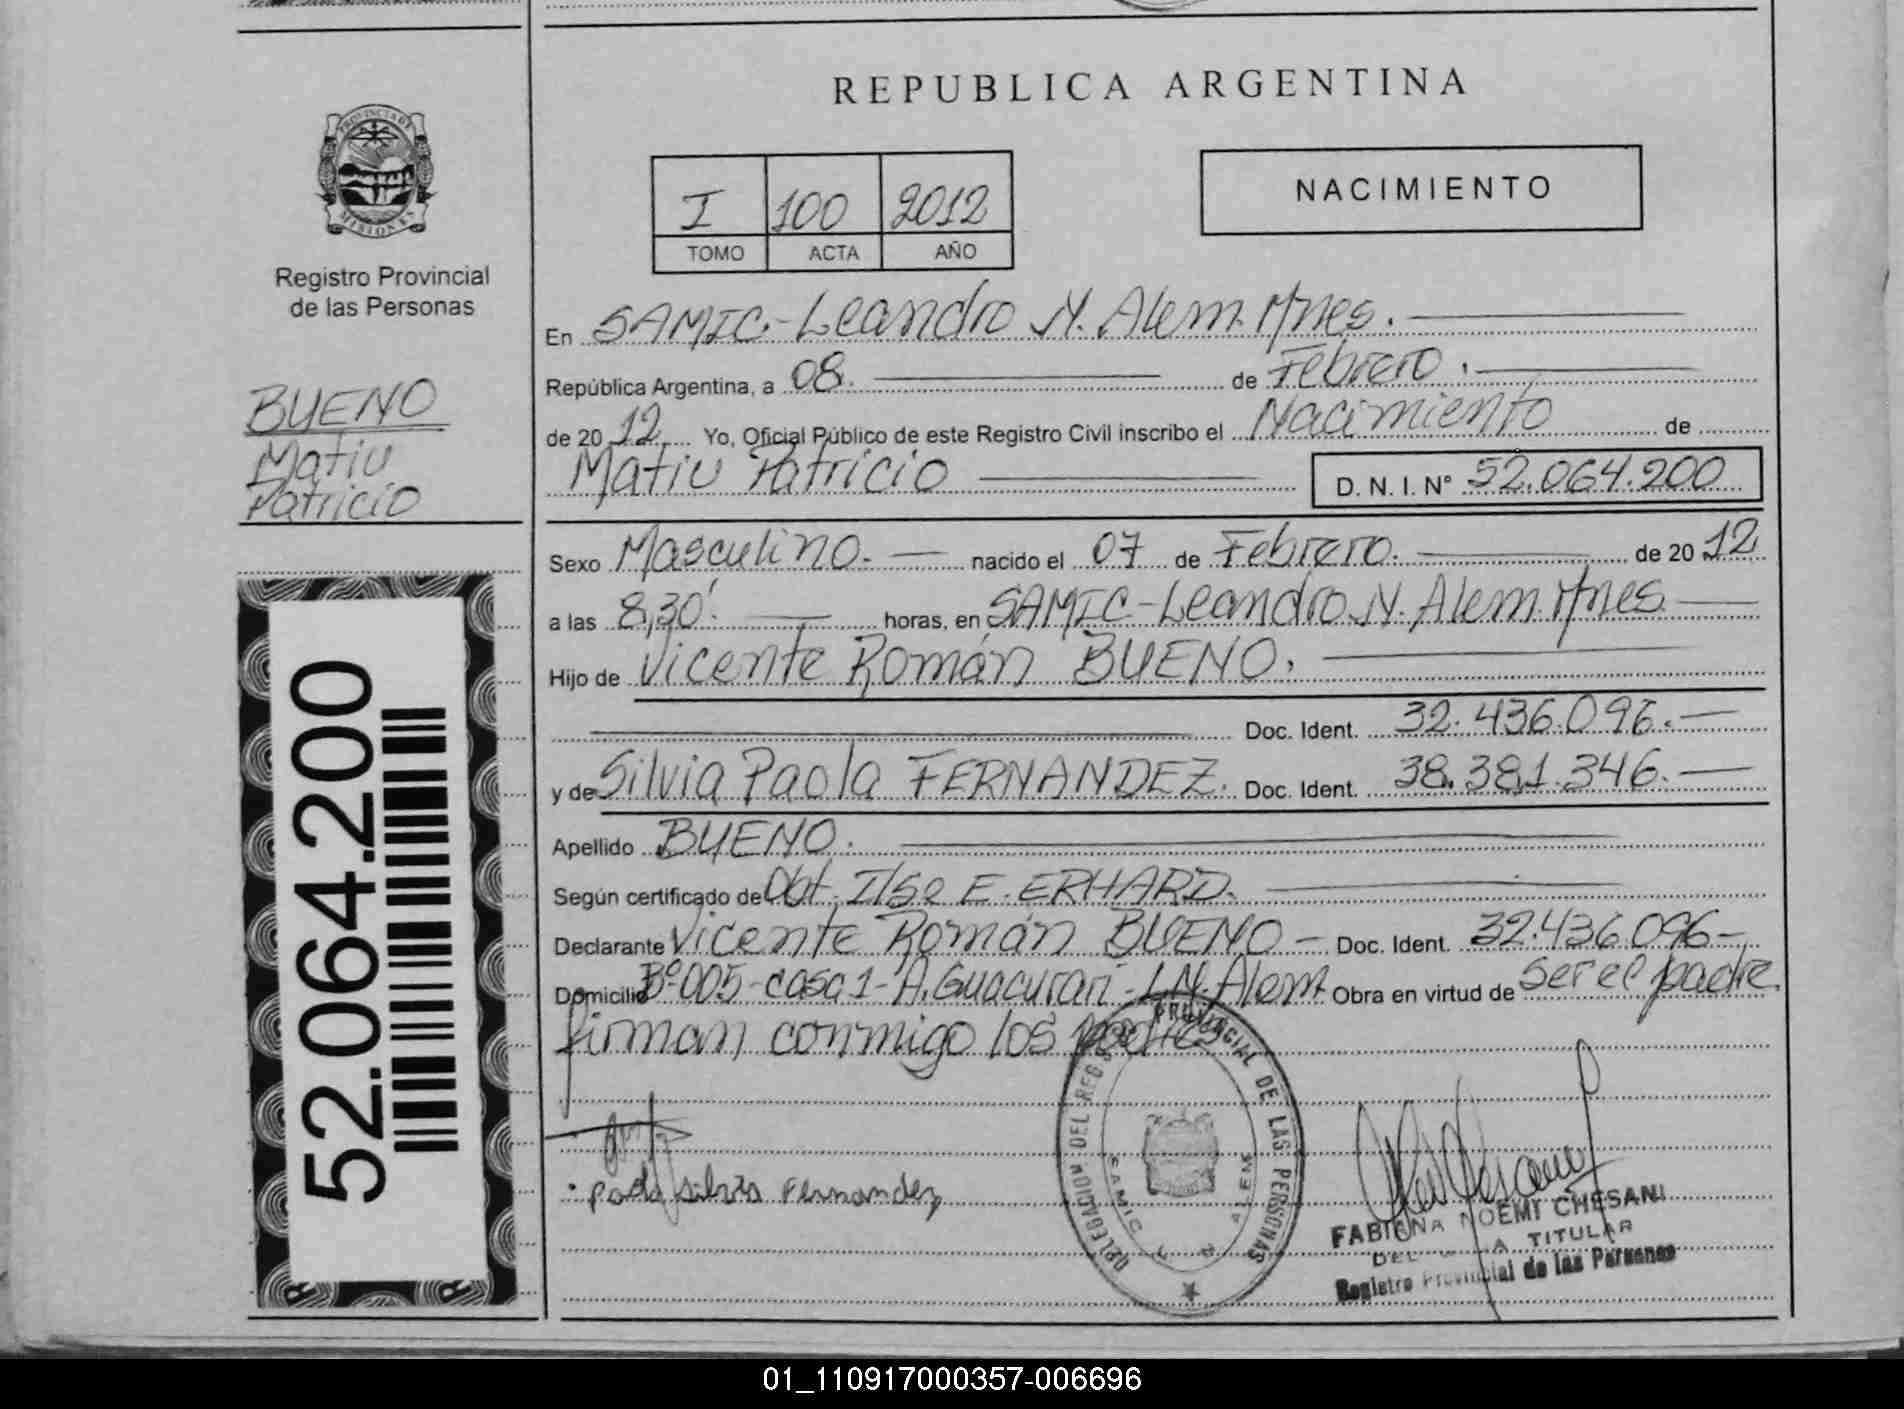 REPUBLICA ARGENTINA
PROVINCIA DE
MISIONES
Registro Provincial
de las Personas
I 100 2012
TOMO ACTA AÑO
NACIMIENTO
BUENO
Matiu
Patricio
En SAMIC.-Leandro N. Alem. Mnes.
República Argentina, a 08. de Febrero.
de 2012 Yo, Oficial Público de este Registro Civil inscribo el Nacimiento de
Matiu Patricio D. N. I. Nº 52.064.200
Sexo Masculino. nacido el 07 de Febrero. de 2012
a las 8,30'. horas, en SAMIC-Leandro N. Alem. Mnes.
Hijo de Vicente Román BUENO.
Doc. Ident. 32.436.096.
y de Silvia Paola FERNANDEZ. Doc. Ident. 38.381.346.
Apellido BUENO.
Según certificado de Obt. Ilse E. ERHARD.
Declarante Vicente Román BUENO - Doc. Ident. 32.436.096-
Domicilio Bº 005-casa 1-A. Guacurari-L.N. Alem Obra en virtud de ser el padre.
firman conmigo los padres
52.064.200
Paola Silvia Fernandez
DELEGACION DEL REG. PROVINCIAL DE LAS PERSONAS
SAMIC L N ALEM
FABIANA NOEMI CHESANI
TITULAR
Registro Provincial de las Personas
01_110917000357-006696